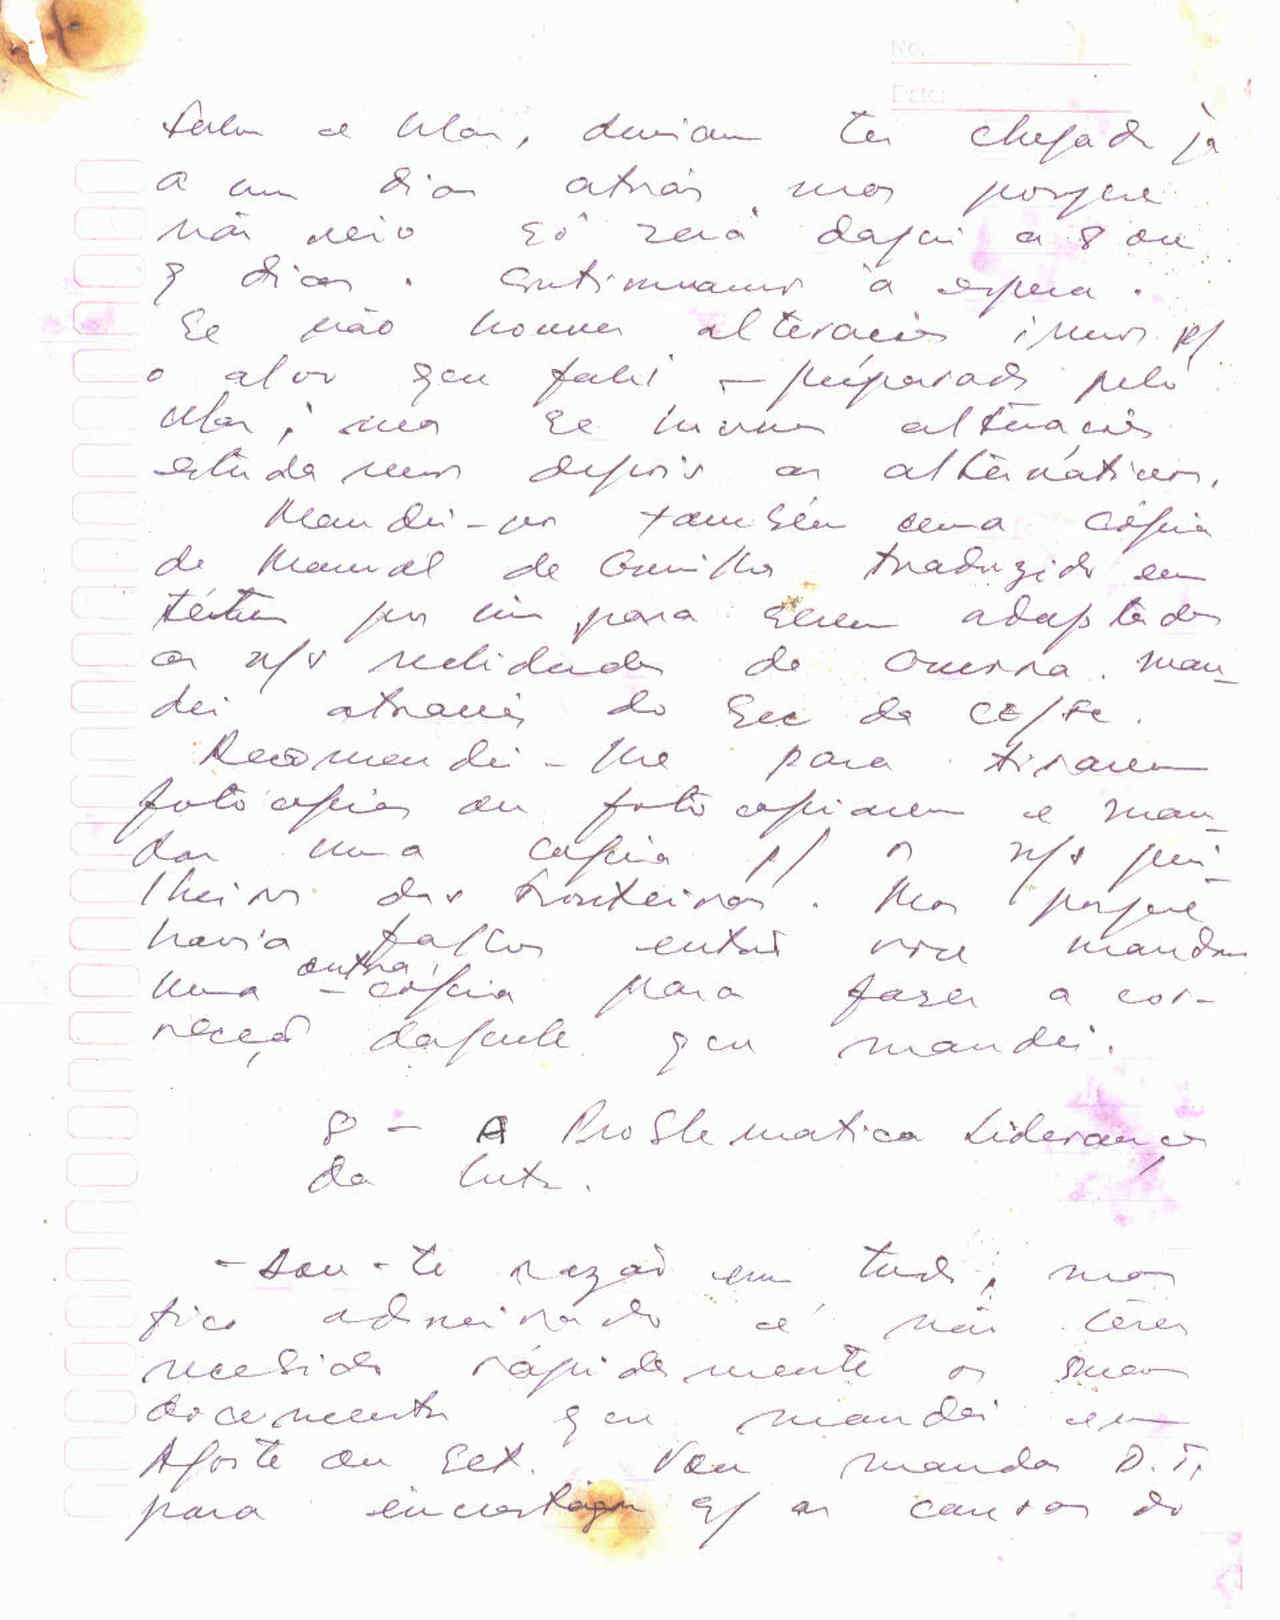 No.
Date:
e Mar, deviam ter chegado já
a um dias atrás, mas porque
não veio só será daqui a 8 ou
9 dias. Continuamos à espera.
Se não houver alterações iremos p/
o alvo que falei – preparado pelo
Mar; mas se houver alterações
estudaremos depois as alternativas.
Mandei-vos também uma cópia
do Manual de Guerrilha traduzido em
Tétum por mim para serem adaptados
as n/s realidades da Guerra. man-
dei através do Sec da CE/FE.
Recomendei-lhe para tirarem
fotocópias ou fotocopiarem e man-
dar uma cópia p/ os n/s gue-
rilheiros das Fronteiras. Mas porque
havia falhas então vou mandar
uma outra cópia para fazer a cor-
recção daquele que mandei.
8 – A Problematica Liderança
da luta.
– Dou-te razão em tudo, mas
fico admirado é não teres
recebido rápidamente os meus
documentos que mandei em
Agosto ou Set. Vou mandar D.T.
para investigar s/ as causas do